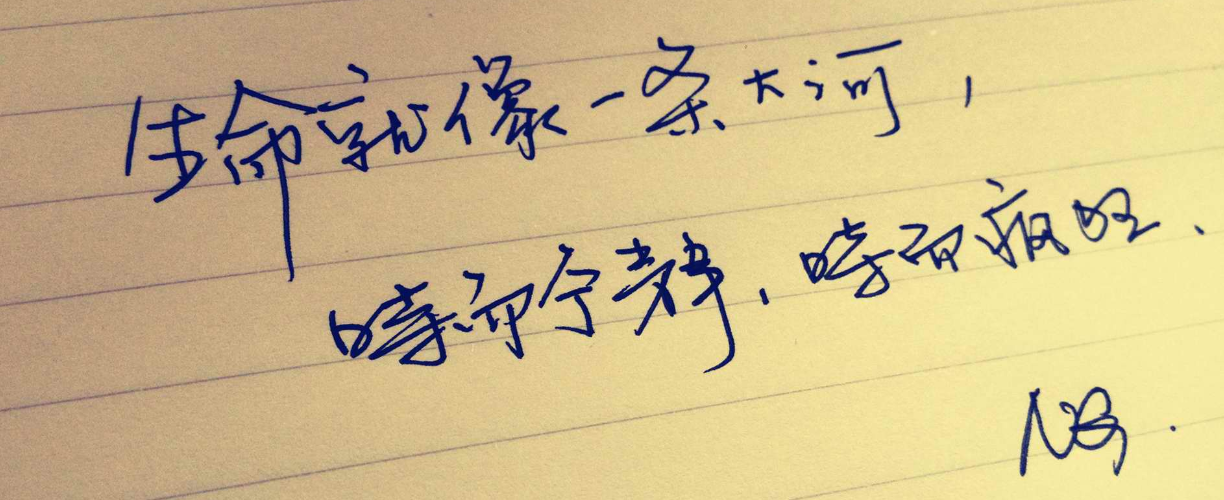 生命就像一条大河，
時而宁静，時而疯狂.